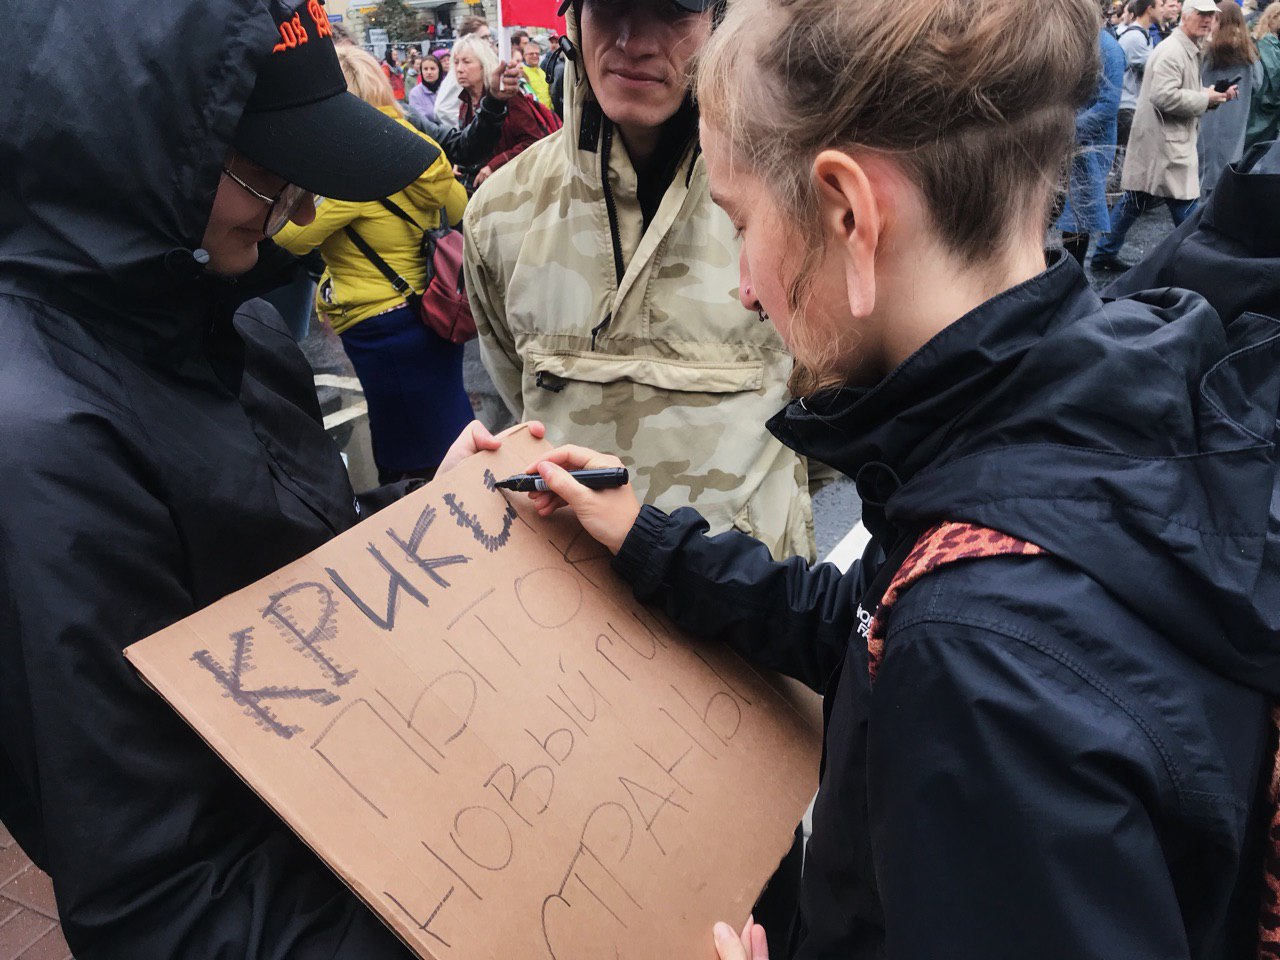 Los
КРИКИ
ПЫТОК
НОВЫЙ ГИМН
СТРАНЫ